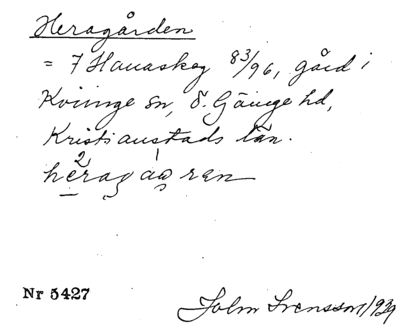 Heragården
= 7 Hanaskog 83/96, gård i
Kviinge sn, ö. Göinge hd,
Kristianstads län.
Nr 5427
John Svensson 1939